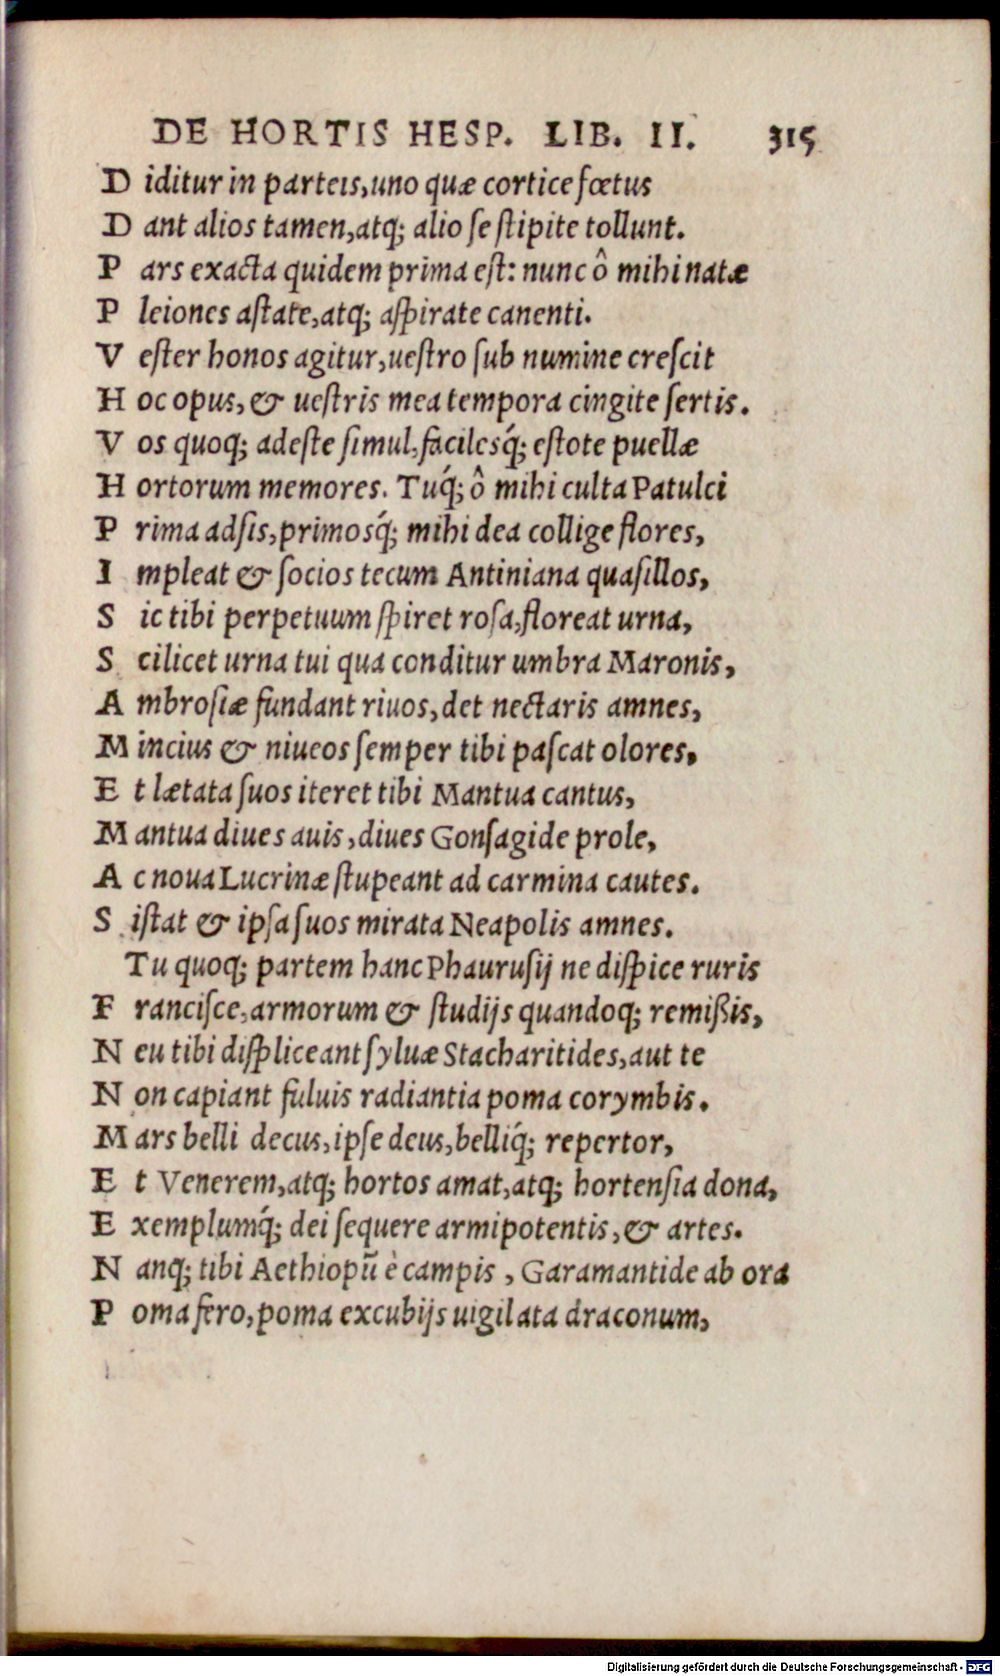 DE HORTIS HESP. LIB. II. 315
D iditur in parteis, uno quæ cortice fœtus
D ant alios tamen, atq; alio se stipite tollunt.
P ars exacta quidem prima est: nunc ô mihi natæ
P leiones astate, atq; aspirate canenti.
V ester honos agitur, uestro sub numine crescit
H oc opus, & uestris mea tempora cingite sertis.
V os quoq; adeste simul, facilesq́; estote puellæ
H ortorum memores. Tuq́; ô mihi culta Patulci
P rima adsis, primosq́; mihi dea collige flores,
I mpleat & socios tecum Antiniana quasillos,
S ic tibi perpetuum spiret rosa, floreat urna,
S cilicet urna tui qua conditur umbra Maronis,
A mbrosiæ fundant riuos, det nectaris amnes,
M incius & niueos semper tibi pascat olores,
E t lætata suos iteret tibi Mantua cantus,
M antua diues auis, diues Gonsagide prole,
A c noua Lucrinæ stupeant ad carmina cautes.
S istat & ipsa suos mirata Neapolis amnes.
Tu quoq; partem hanc Phaurusij ne dispice ruris
F rancisce, armorum & studijs quandoq; remißis,
N eu tibi displiceant syluæ Stacharitides, aut te
N on capiant fuluis radiantia poma corymbis.
M ars belli decus, ipse deus, belliq́; repertor,
E t Venerem, atq; hortos amat, atq; hortensia dona,
E xemplumq́; dei sequere armipotentis, & artes.
N anq; tibi Aethiopū è campis, Garamantide ab ora
P oma fero, poma excubijs uigilata draconum,
Digitalisierung gefördert durch die Deutsche Forschungsgemeinschaft - DFG